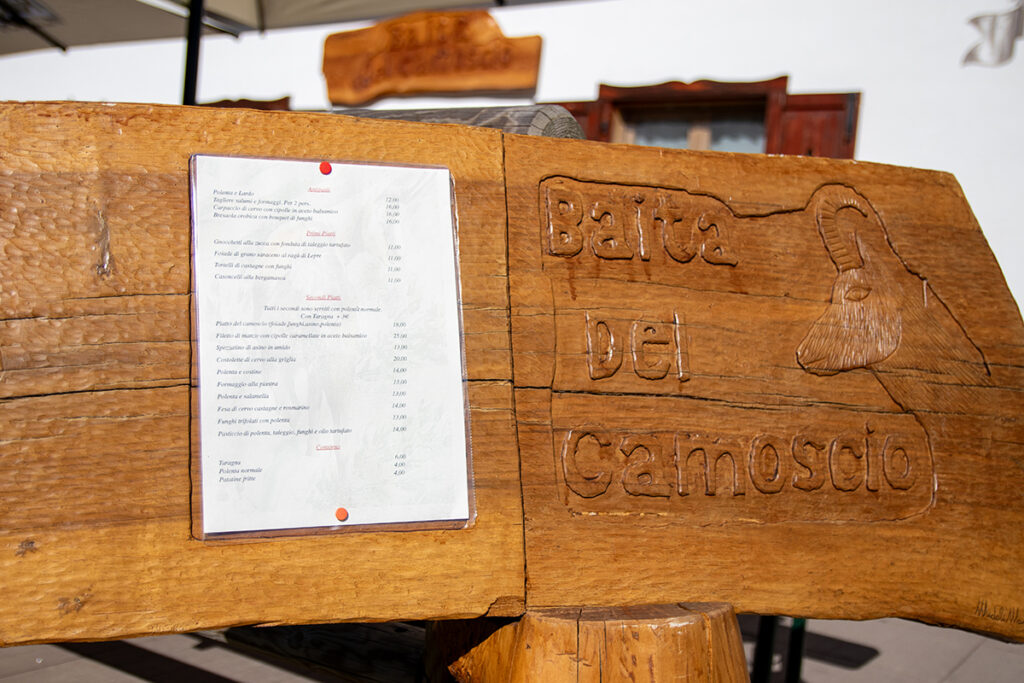 Baita
del Camoscio
Antipasti
Polenta e Lardo 12,00
Tagliere salumi e formaggi. Per 2 pers. 16,00
Carpaccio di cervo con cipolle in aceto balsamico 16,00
Bresaola orobica con bouquet di funghi 16,00
Primi Piatti
Gnocchetti alla zucca con fonduta di taleggio tartufato 11,00
Foiade di grano saraceno al ragù di Lepre 11,00
Tortelli di castagne con funghi 11,00
Casoncelli alla bergamasca 11,00
Secondi Piatti
Tutti i secondi sono serviti con polenta normale.
Con Taragna + 3€
Piatto del camoscio (foiade funghi,asino,polenta) 18,00
Filetto di manzo con cipolle caramellate in aceto balsamico 25,00
Spezzatino di asino in umido 15,00
Costolette di cervo alla griglia 20,00
Polenta e costine 14,00
Formaggio alla piastra 13,00
Polenta e salamella 13,00
Fesa di cervo castagne e rosmarino 14,00
Funghi trifolati con polenta 13,00
Pasticcio di polenta, taleggio, funghi e olio tartufato 14,00
Contorni
Taragna 6,00
Polenta normale 4,00
Patatine fritte 4,00
Baita
Del
Camoscio